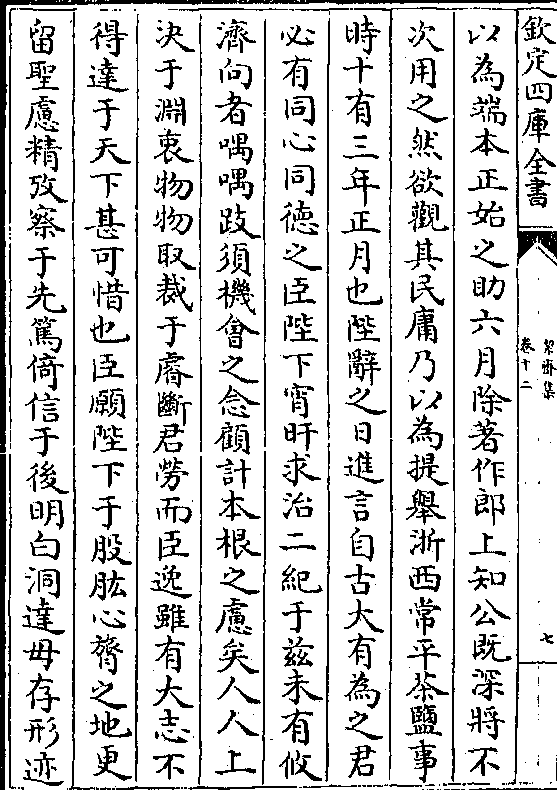 欽定四庫全書
絜齋集
卷十二
七
以為端本正始之助六月除著作郎上知公既深將不
次用之然欲觀其民庸乃以為提舉浙西常平茶鹽事
時十有三年正月也陛辭之日進言自古大有為之君
必有同心同德之臣陛下宵旰求治二紀于兹未有攸
濟向者喁喁跂須機會之念顧計本根之慮矣人人上
決于淵衷物物取裁于睿斷君勞而臣逸雖有大志不
得達于天下甚可惜也臣願陛下于股肱心膂之地更
留聖慮精攷察于先篤倚信于後明白洞達毋存形迹